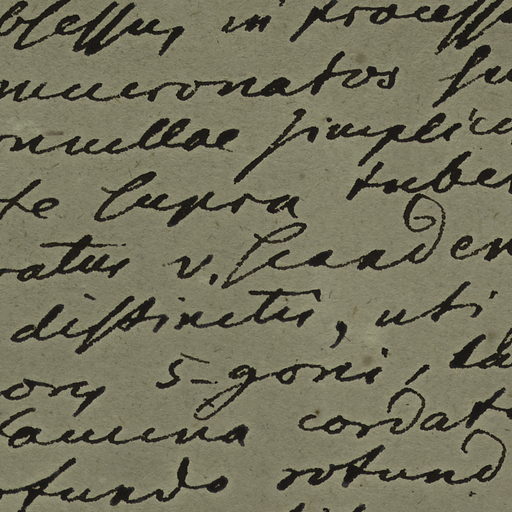 in process
mucronatos su
nullae simplic
te supra tuber
ratus v. scanden
distinctis, uti
5-goni, la
lamina cordat
fundo rotund